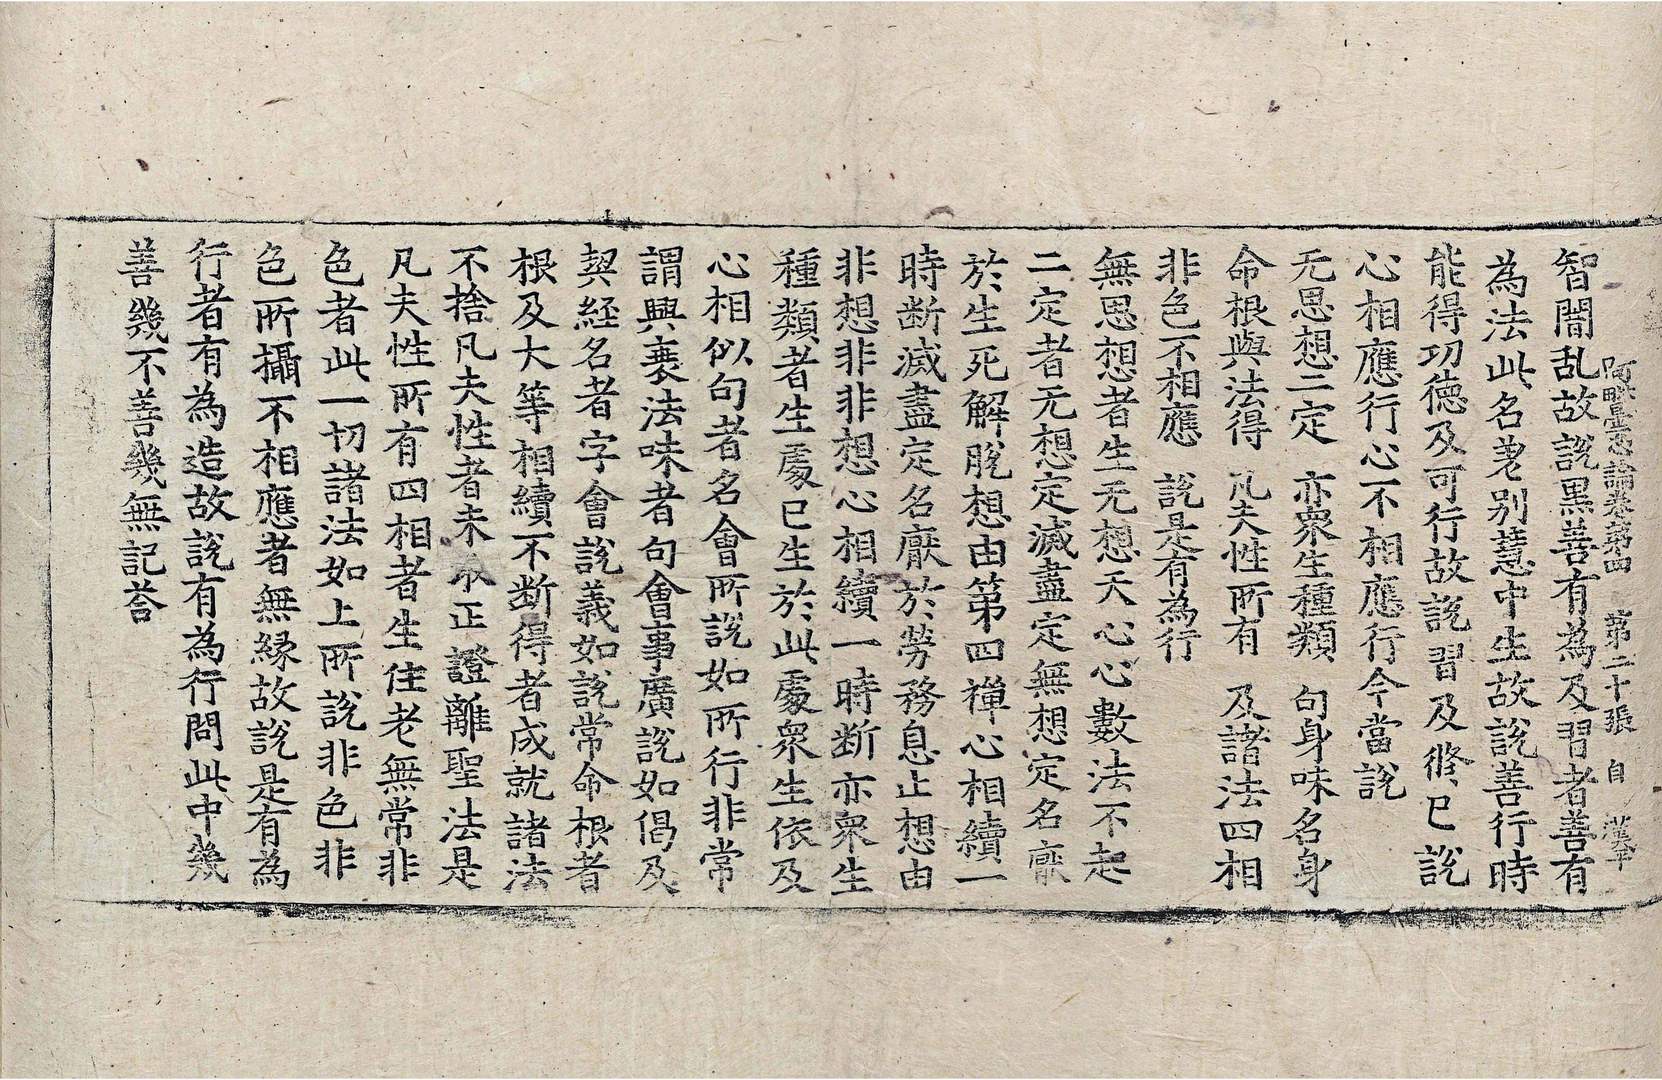 阿毗曇心論卷第四　第二十張　自　漢平
智闇乱故說黑善有為及習者善有
為法此名差别慧中生故說善行時
能得功德及可行故說習及俢已說
心相應行心不相應行今當說
无思想二定　亦衆生種類　句身味名身
命根與法得　凡夫性所有　及諸法四相
非色不相應　說是有為行
無思想者生无想天心心數法不起
二定者无想定滅盡定無想定名厭
於生死解脫想由第四禪心相續一
時断滅盡定名厭於勞務息止想由
非想非非想心相續一時断亦衆生
種類者生處已生於此處衆生依及
心相似句者名會所說如所行非常
謂興衰法味者句會事廣說如偈及
契經名者字會說義如說常命根者
根及大等相續不断得者成就諸法
不捨凡夫性者未取正證離聖法是
凡夫性所有四相者生住老無常非
色者此一切諸法如上所說非色非
色所攝不相應者無緣故說是有為
行者有為造故說有為行問此中幾
善幾不善幾無記荅